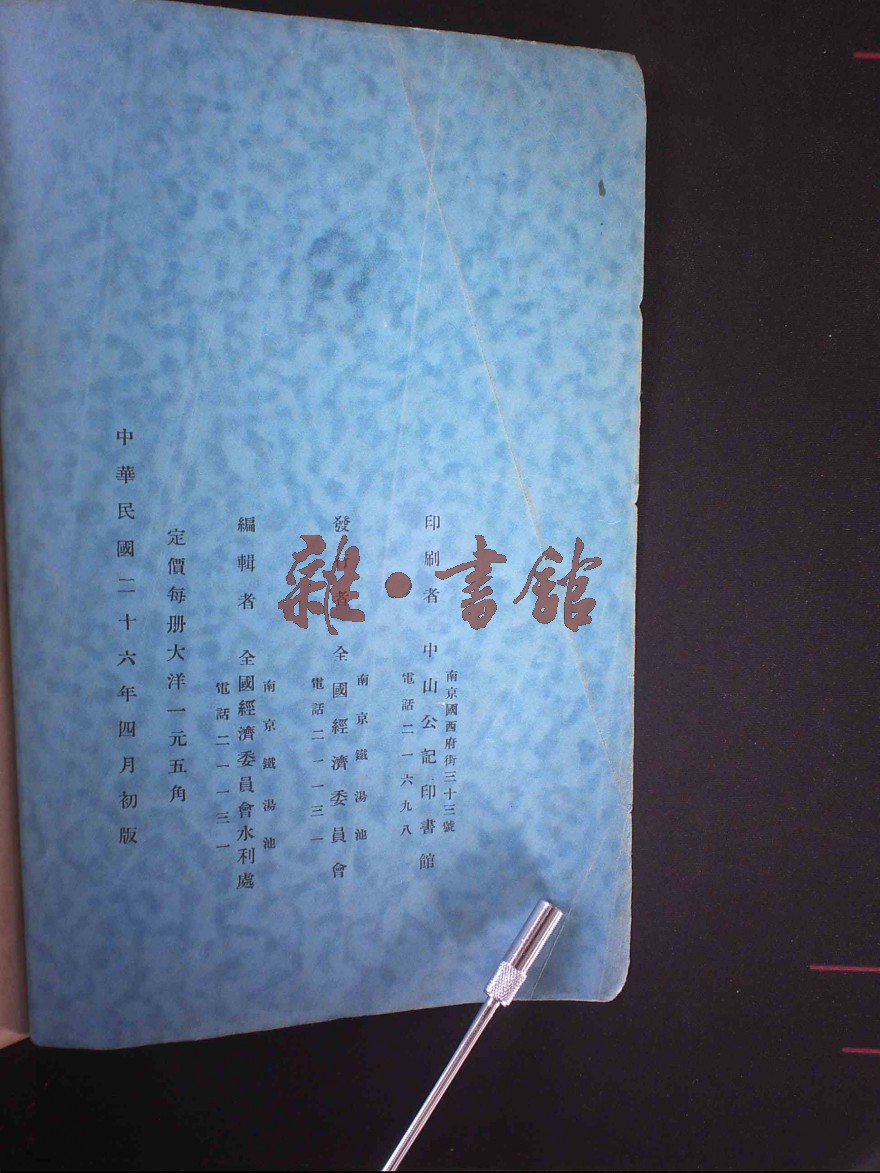 南京國西府街三十三號
印刷者 中山公記印書館
電話二一六九八
南京鐵湯池
發行者 全國經濟委員會
電話二一一三一
南京鐵湯池
編輯者 全國經濟委員會水利處
電話二一一三一
定價每册大洋一元五角
中華民國二十六年四月初版
雜·書館